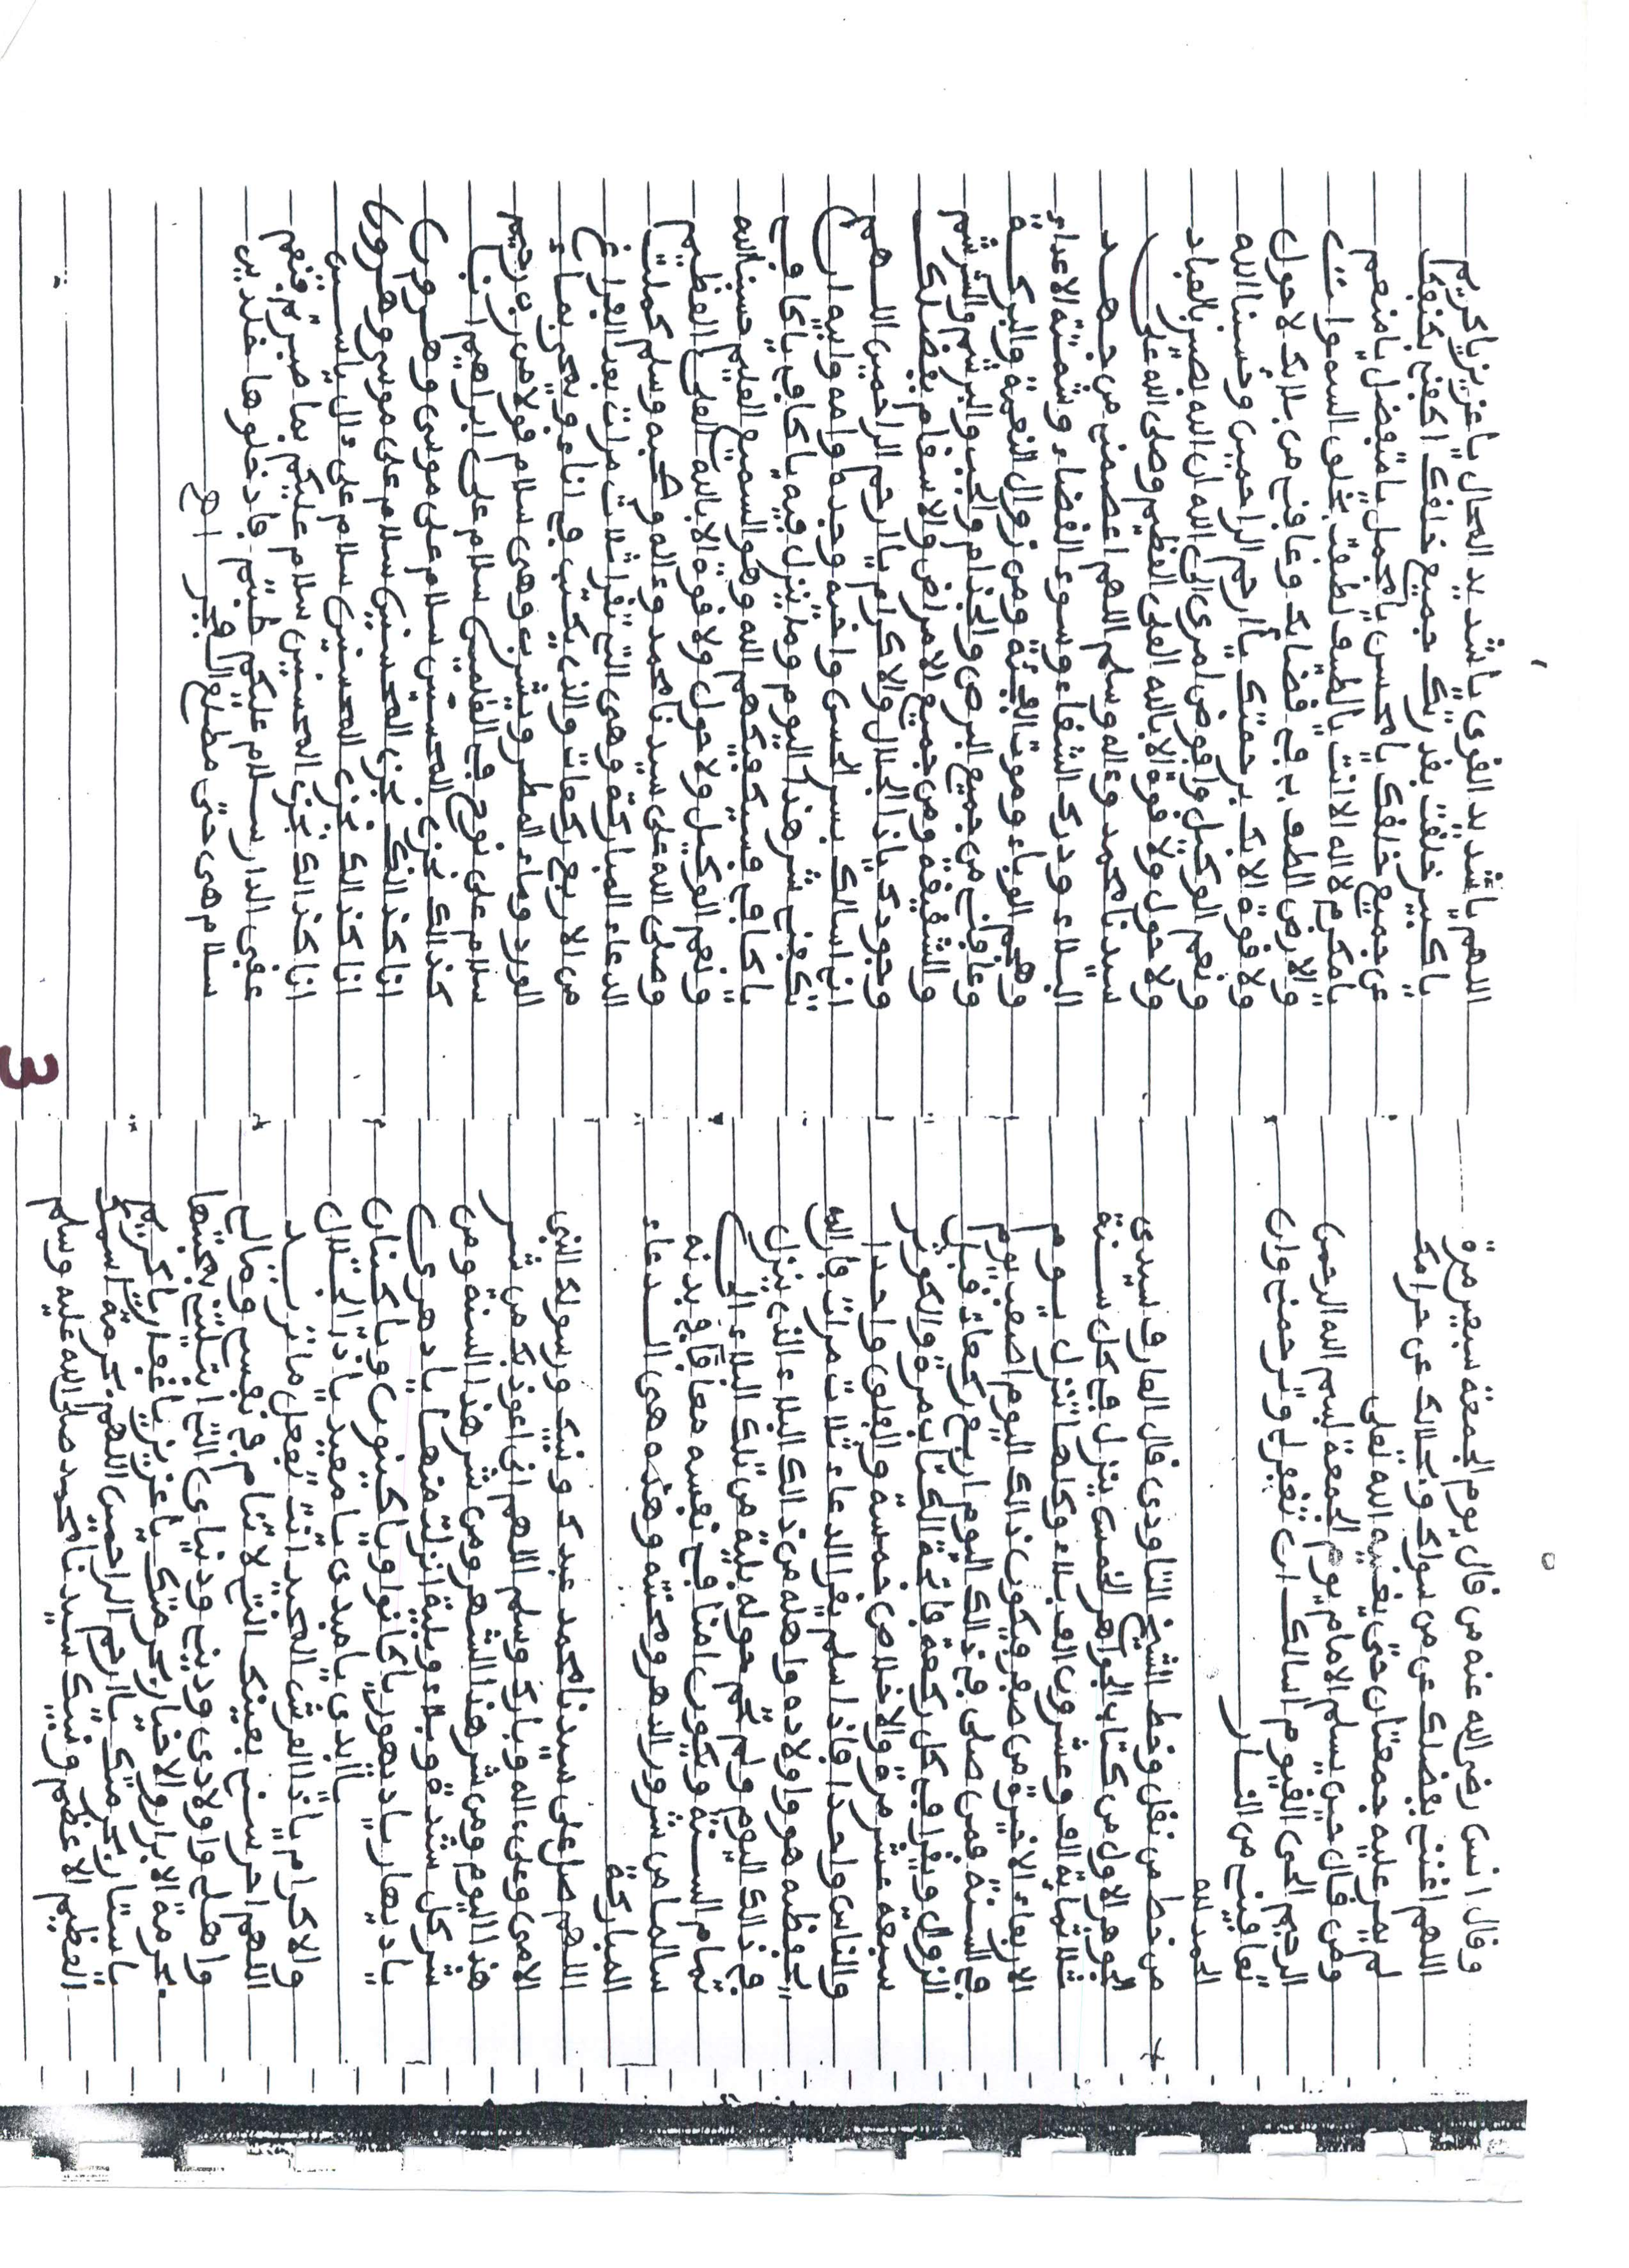 وقال انس رضي الله عنه من قال يوم الجمعة سبعين مرة
اللهم اغنني بفضلك عن من سواك وبحلالك عن حرامك
لم يمر عليه جمعتان حتى يغنيه الله تعلى
ومن قال حين يسلم الامام يوم الجمعة بسم الله الرحمن
الرحيم الحي القيوم اسالك ان تغفر لي وترحمني وان
تعافيني من النار
الحمد لله
من خط من نقل وخط الشيخ التاودي قال العارف سيدي
الجوهر الاول من كتاب الجواهر الخمس ينزل في كل سنة
ثلاثماية الف وعشرون الف بلاء وكلها تنزل يوم
الاربعاء الاخيرة من صفر ويكون ذالك اليوم اصعب يوم
في السنة فمن صلى في ذالك اليوم اربع ركعات قبل
الزوال ويقرا في كل ركعة فاتحة الكتاب مرة والكوثر
سبعة عشر مرة والاخلاص خمسة والفلق واحدا
والناس واحدا فاذا سلم يقرا الدعاء ثلاث مرات فان الله
يحفظه هو واولاده واهله من ذالك البلاء الذي ينزل
في ذالك اليوم ولم تحم حوله بلية من تلك البلاء الى
تمام السنة ويكون امنا في نفسه معافا في بدنه
سالما من شرور الدهر ومحنته وهذه هي الدعاء
المباركة
اللهم صل على سيدنا محمد عبدك ونبيك ورسولك النبي
الامي وعلى اله وبارك وسلم اللهم اني اعوذ بك من شر
هذا اليوم ومن شر هذا الشهر ومن شر هذا السنة ومن
شر كل شدة وبلاء وبلية انزلت منها يا دهري
يا ديهار يا ديهور يا كانوا ويا كينون ويا كينان
يا ابدي يا مبدي يا معيد يا ذا الجلال
والاكرام يا ذا العرش المجيد انت تفعل ما تريد
اللهم احرسني بعينك التي لا تنام في نفسي ومالي
واهلي واولادي وديني ودنياي التي ابتليتني بحبتها
بحرمة الابرار والاخيار برحمتك يا عزيز يا غفار يا كريم
يا ستار برحمتك يا ارحم الراحمين اللهم بحرمة اسمك
العظيم الاعظم ونبيك سيدنا محمد صلى الله عليه وسلم
اللهم يا شديد القوى يا شديد المحال يا عزيز يا كريم
يا كبير خلقت بقدرتك جميع خلقك اكفني بكنفك
عن جميع خلقك يا محسن يا مجمل يا متفضل يا منعم
يا مكرم لا اله الا انت يا لطيف لطفت بخلق السموات
والارض الطف بي في قضايك وعافني من بلايك لا حول
ولا قوة الا بك برحمتك يا ارحم الراحمين وحسبنا الله
ونعم الوكيل وافوض امري الى الله ان الله بصير بالعباد
ولا حول ولا قوة الا بالله العلي العظيم وصلى الله على
سيدنا محمد وءاله وسلم اللهم اعصمني من جهد
البلاء ودرك الشقاء وسوء القضاء وشماتة الاعداء
وهجم الوباء وموت الفجئة ومن زوال النعمة والبركة
وعافني من جميع البرص والجذام والجب والبرشم والشرشم
والشقيقة ومن جميع الامراض والاسقام بفضلك
وجودك يا ذا الجلال والاكرام يا ارحم الراحمين اللهم
اني اسالك بسر الحسن واخيه وجده وامه وابيه ان
تكفني شر هذا اليوم وما ينزل فيه يا كافي يا كافي
يا كافي فسيكفيكهم الله وهو السميع العليم حسبنا الله
ونعم الوكيل ولا حول ولا قوة الا بالله العلي العظيم
وصلى الله على سيدنا محمد وءاله وصحبه وسلم كملت
الدعاء المباركة وهي التي تقرا ثلاث مرات بعد الفراغ
من الاربع ركعات والذي يكتب في اناء ويمحى بماء
الورد وماء المطر ويشرب وهي سلام قولا من رب رحيم
سلام على نوح في العلمين سلام على ابراهيم انا
كذالك نجزي المحسنين سلام على موسى وهرون
انا كذالك نجزي المحسنين سلام على موسى وهرون
انا كذالك نجزي المحسنين سلام على ءال ياسين
انا كذالك نجزي المحسنين سلام عليكم بما صبرتم فنعم
عقبى الدار سلام عليكم طبتم فادخلوها خلدين
سلام هي حتى مطلع الفجر اهـ
3